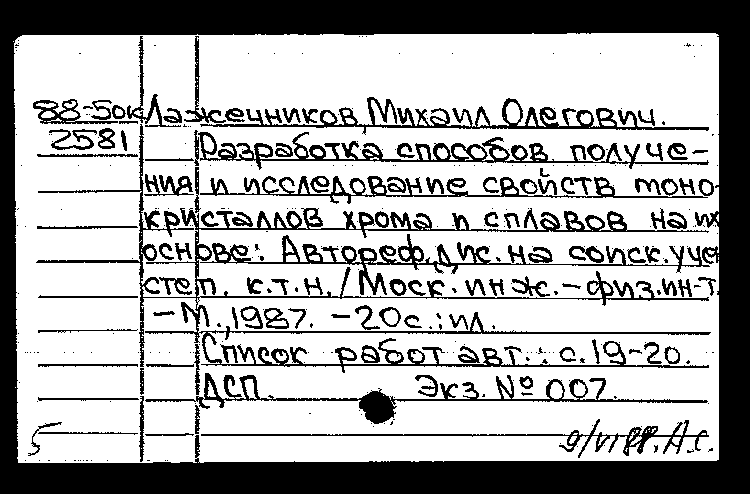 88-5ок Лажечников, Михаил Олегович.
2581 Разработка способов получе-
ния и исследование свойств моно-
кристаллов хрома и сплавов на их
основе: Автореф. дис. на соиск. учен
степ. к.т.н. / Моск. инж.-физ. ин-т.
-М., 1987. -20с.: ил.
Список работ авт.: с. 19-20.
ДСП. Экз. № 007.
5 9/VI 88. А.С.